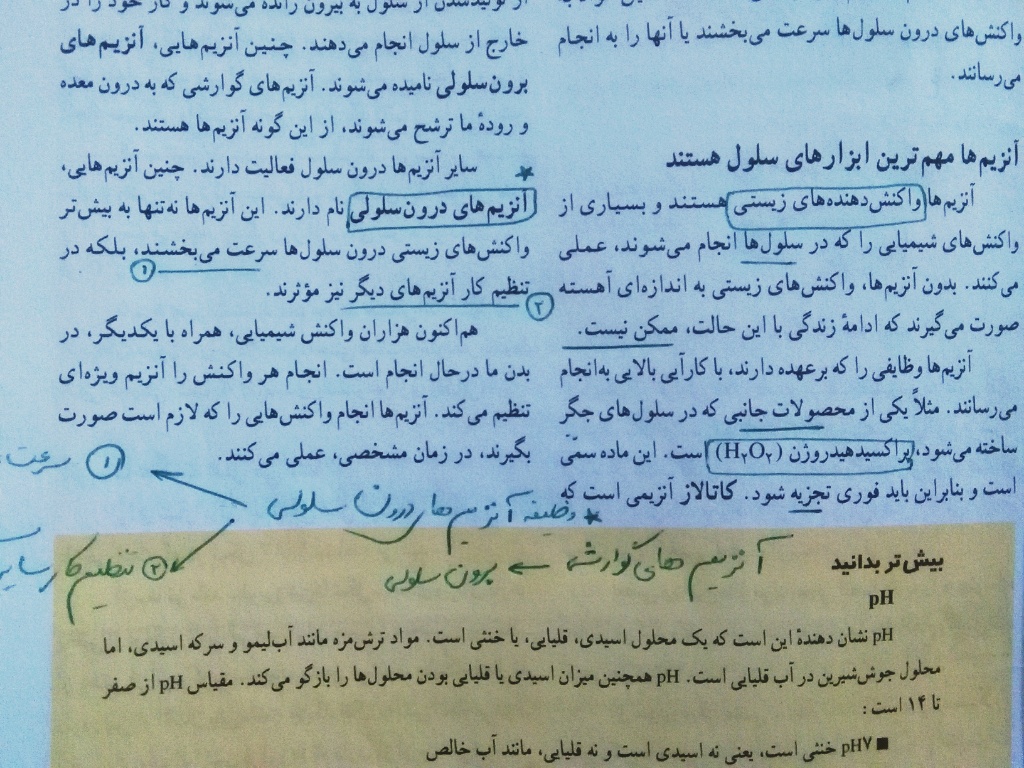 واکنش‌های درون سلول‌ها سرعت می‌بخشند یا آنها را به انجام
می‌رسانند.
آنزیم‌ها مهم‌ترین ابزارهای سلول هستند
آنزیم‌ها واکنش‌دهنده‌های زیستی هستند و بسیاری از
واکنش‌های شیمیایی را که در سلول‌ها انجام می‌شوند، عملی
می‌کنند. بدون آنزیم‌ها، واکنش‌های زیستی به اندازه‌ای آهسته
صورت می‌گیرند که ادامهٔ زندگی با این حالت، ممکن نیست.
آنزیم‌ها وظایفی را که برعهده دارند، با کارآیی بالایی به‌انجام
می‌رسانند. مثلاً یکی از محصولات جانبی که در سلول‌های جگر
ساخته می‌شود، پراکسیدهیدروژن (H₂O₂) است. این ماده سمّی
است و بنابراین باید فوری تجزیه شود. کاتالاز آنزیمی است که
از تولیدشدن از سلول به بیرون رانده می‌شوند و کار خود را در
خارج از سلول انجام می‌دهند. چنین آنزیم‌هایی، آنزیم‌های
برون‌سلولی نامیده می‌شوند. آنزیم‌های گوارشی که به درون معده
و رودهٔ ما ترشح می‌شوند، از این گونه آنزیم‌ها هستند.
سایر آنزیم‌ها درون سلول فعالیت دارند. چنین آنزیم‌هایی،
آنزیم‌های درون‌سلولی نام دارند. این آنزیم‌ها نه‌تنها به بیش‌تر
واکنش‌های زیستی درون سلول‌ها سرعت می‌بخشند، بلکه در
۱
تنظیم کار آنزیم‌های دیگر نیز مؤثرند.
۲
هم‌اکنون هزاران واکنش شیمیایی، همراه با یکدیگر، در
بدن ما درحال انجام است. انجام هر واکنش را آنزیم ویژه‌ای
تنظیم می‌کند. آنزیم‌ها انجام واکنش‌هایی را که لازم است صورت
بگیرند، در زمان مشخصی، عملی می‌کنند.
وظیفه آنزیم‌های درون سلولی
۱ سرعت
۲ تنظیم کار سایر
آنزیم‌های گوارشی ← برون سلولی
بیش‌تر بدانید
pH
pH نشان دهندهٔ این است که یک محلول اسیدی، قلیایی، یا خنثی است. مواد ترش‌مزه مانند آب‌لیمو و سرکه اسیدی، اما
محلول جوش‌شیرین در آب قلیایی است. pH همچنین میزان اسیدی یا قلیایی بودن محلول‌ها را بازگو می‌کند. مقیاس pH از صفر
تا ۱۴ است:
■ pH۷ خنثی است، یعنی نه اسیدی است و نه قلیایی، مانند آب خالص